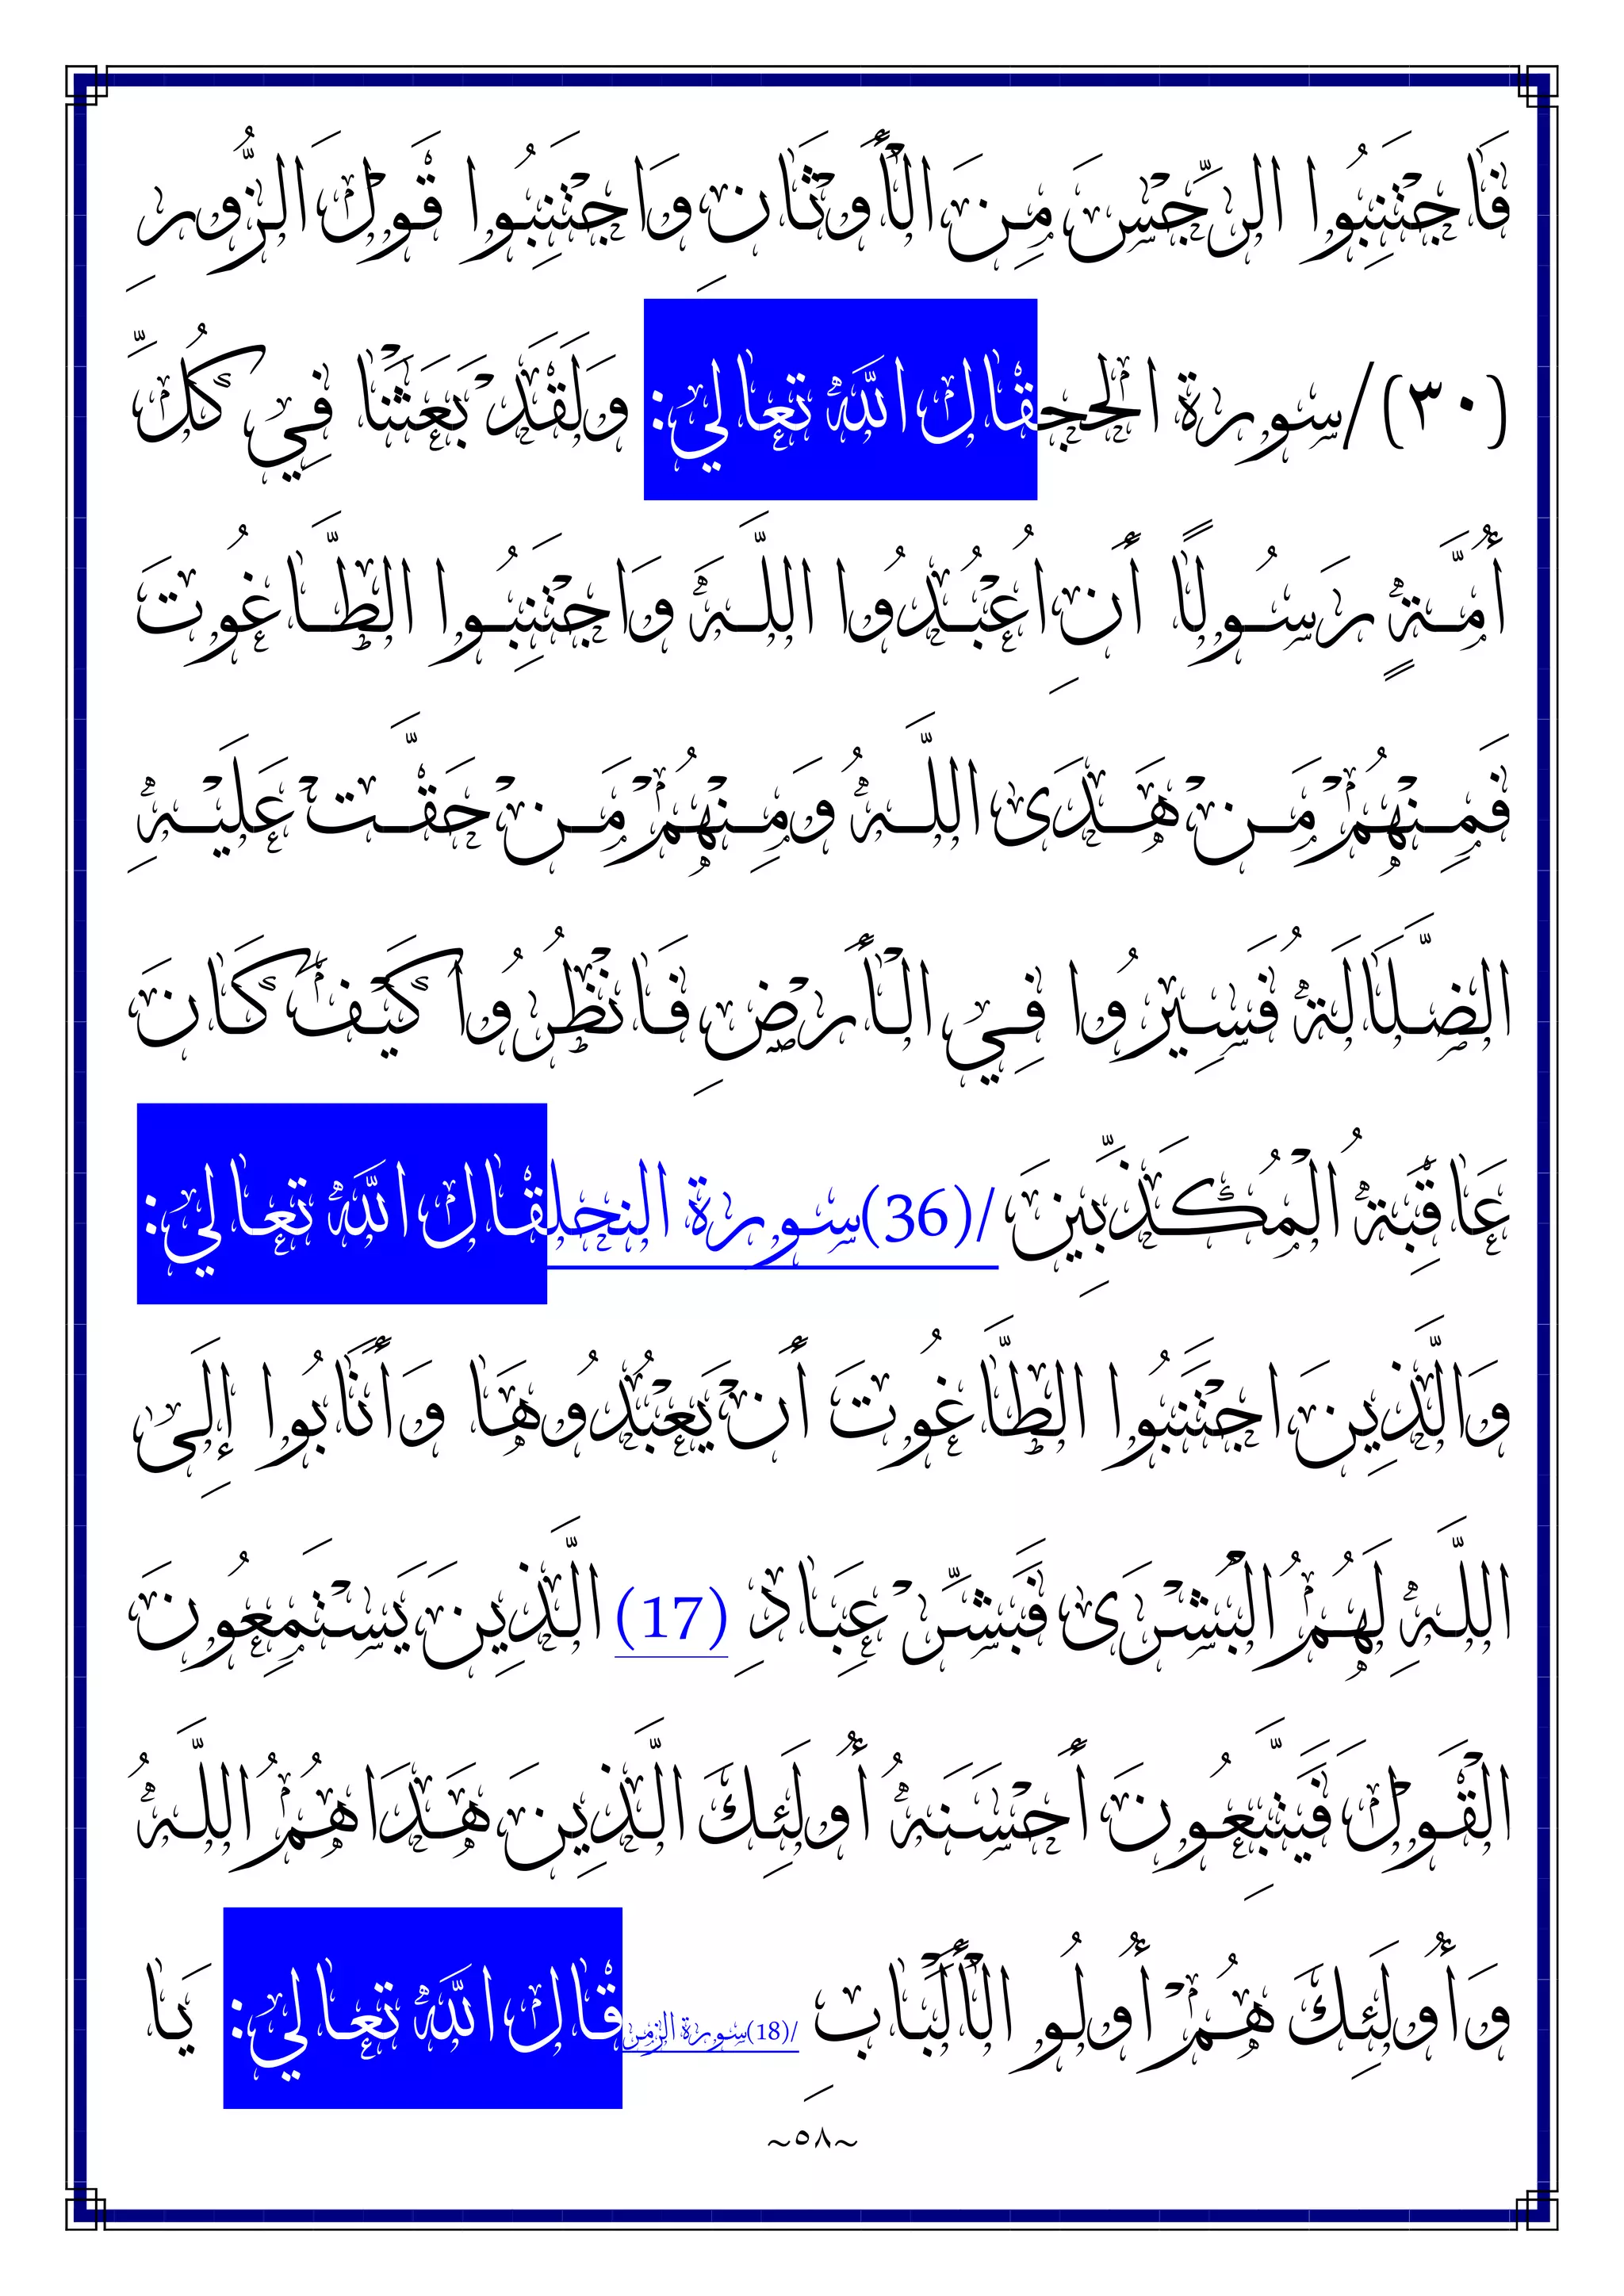 فَاجْتَنِبُوا الرِّجْسَ مِنَ الْأَوْثَانِ وَاجْتَنِبُوا قَوْلَ الزُّورِ
(٣٠) /سورة الحجقال الله تعالي: وَلَقَدْ بَعَثْنَا فِي كُلِّ
أُمَّةٍ رَسُولًا أَنِ اُعْبُدُوا اللَّهَ وَاجْتَنِبُوا الطَّاغُوتَ
فَمِنْهُمْ مَنْ هَدَى اللَّهُ وَمِنْهُمْ مَنْ حَقَّتْ عَلَيْهِ
الضَّلَالَةُ فَسِيرُوا فِي الْأَرْضِ فَانْظُرُوا كَيْفَ كَانَ
عَاقِبَةُ الْمُكَذِّبِينَ /(36)سورة النحلقال الله تعالي:
وَالَّذِينَ اجْتَنَبُوا الطَّاغُوتَ أَنْ يَعْبُدُوهَا وَأَنَابُوا إِلَى
اللَّهِ لَهُمُ الْبُشْرَى فَبَشِّرْ عِبَادِ (17) الَّذِينَ يَسْتَمِعُونَ
الْقَوْلَ فَيَتَّبِعُونَ أَحْسَنَهُ أُولَئِكَ الَّذِينَ هَدَاهُمُ اللَّهُ
وَأُولَئِكَ هُمْ أُولُو الْأَلْبَابِ /(18)سورة الزمرقال الله تعالي: يَا
~٥٨~